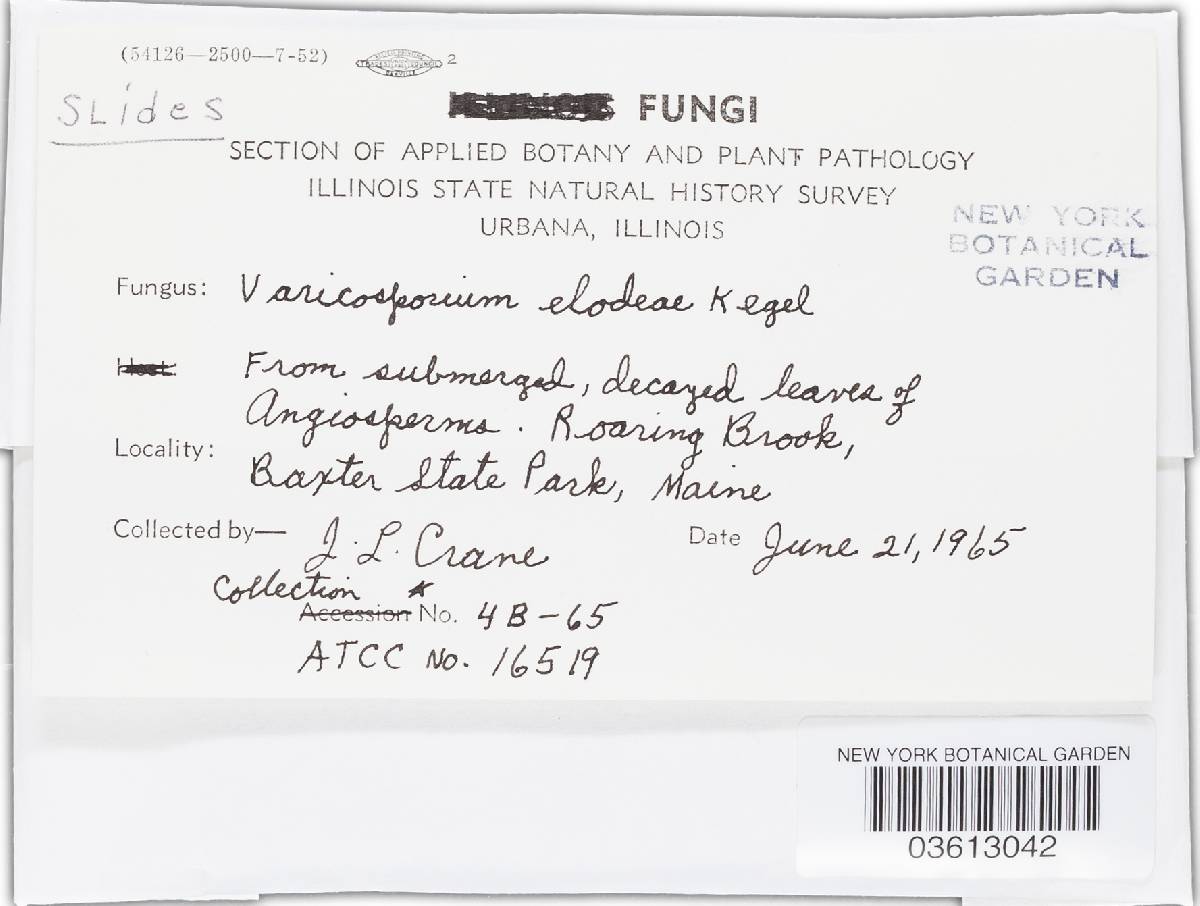 (54126—2500—7-52) 2
SLides
FUNGI
SECTION OF APPLIED BOTANY AND PLANT PATHOLOGY
ILLINOIS STATE NATURAL HISTORY SURVEY
URBANA, ILLINOIS
NEW YORK
BOTANICAL
GARDEN
Fungus: Varicosporium elodeae Kegel
From submerged, decayed leaves of
Angiosperms. Roaring Brook,
Locality:
Baxter State Park, Maine
Collected by— J. L. Crane Date June 21, 1965
Collection
Accession No. 4B-65
ATCC No. 16519
NEW YORK BOTANICAL GARDEN
03613042